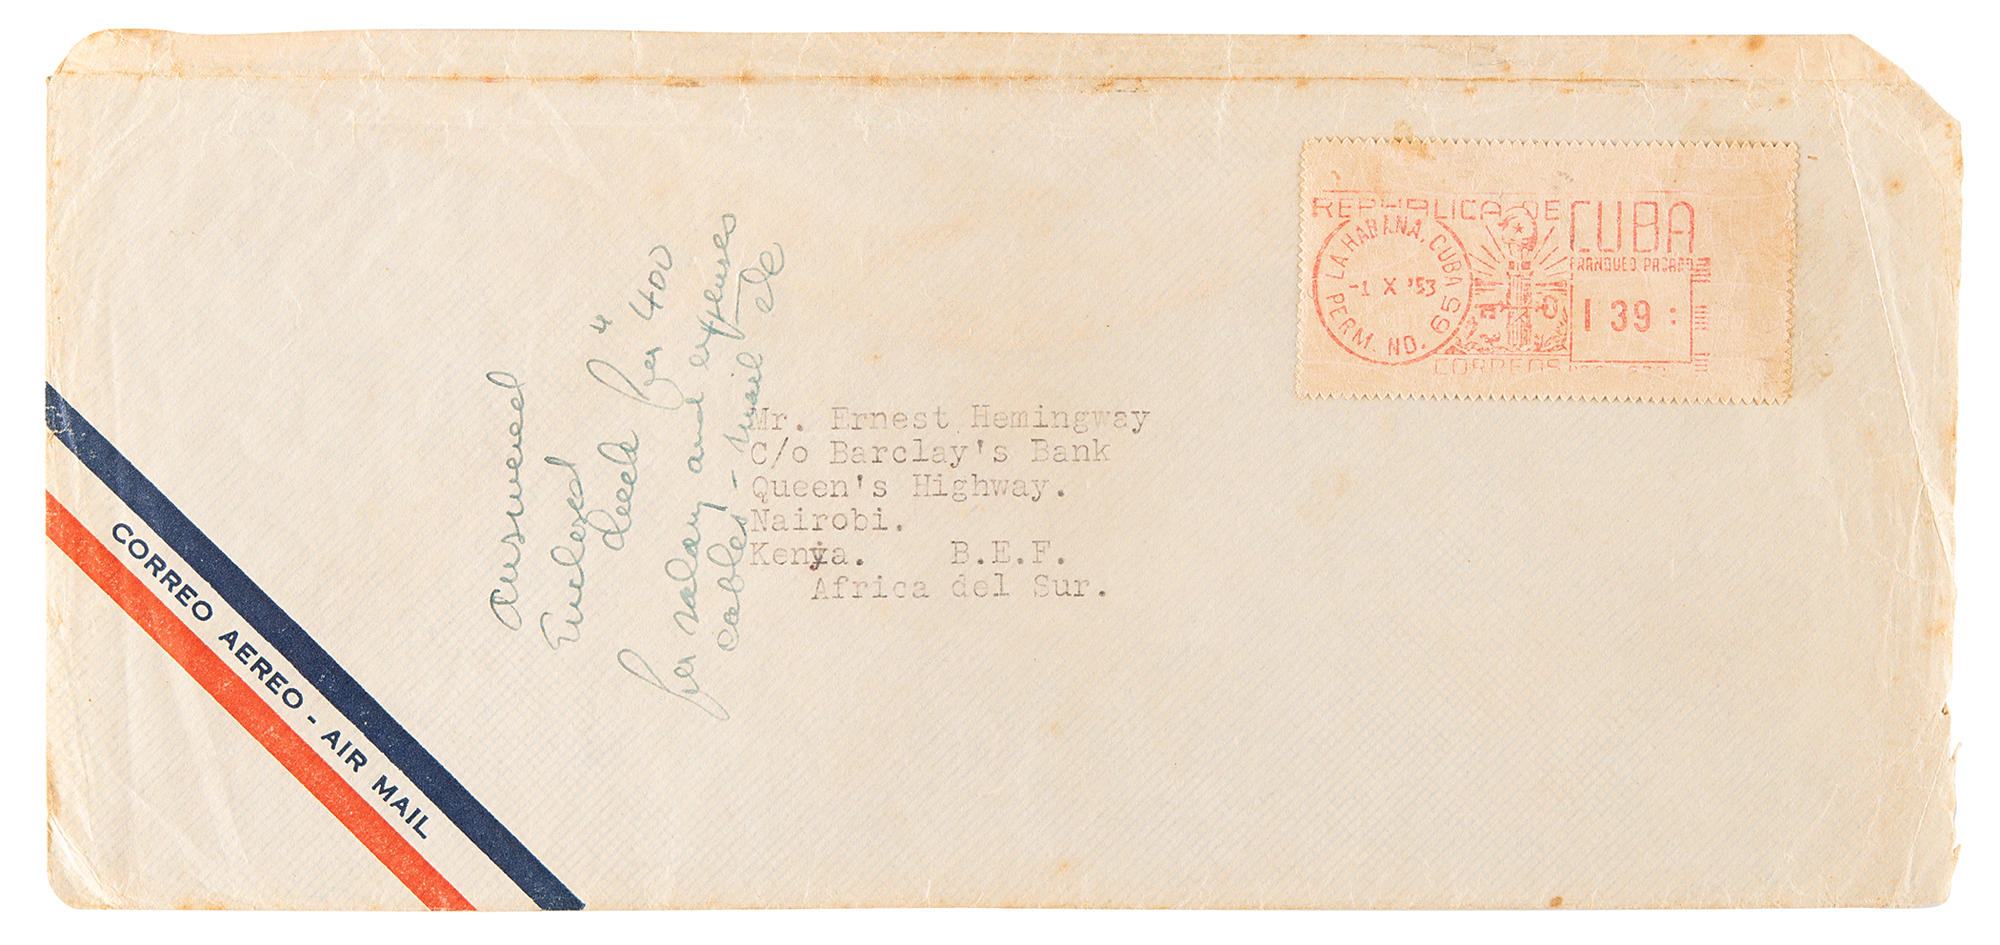 REPUBLICA DE CUBA
FRANQUEO PAGADO
LA HABANA, CUBA
-1 X '53
PERM. NO. 651
139
CORREOS
answered
Enclosed
check for "400
for salary and expenses
cables - mail etc
Mr. Ernest Hemingway
C/o Barclay's Bank
Queen's Highway.
Nairobi.
Kenya. B.E.F.
Africa del Sur.
CORREO AEREO - AIR MAIL